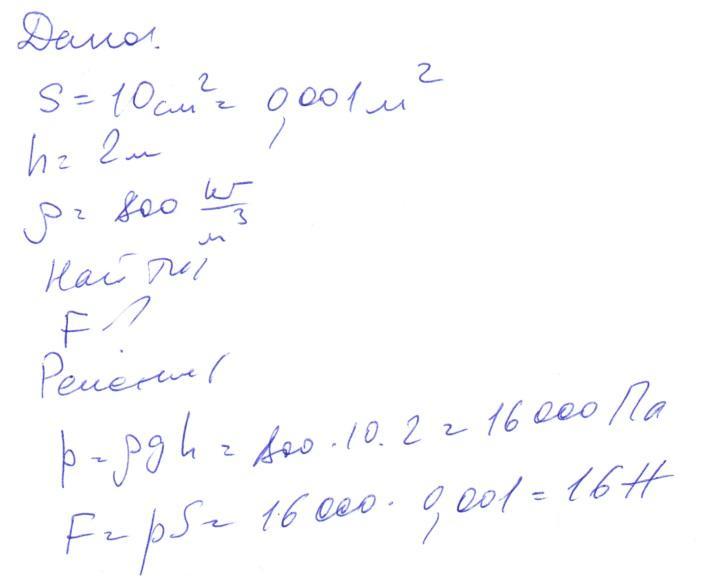 Дано:
S = 10 см² = 0,001 м²
h = 2 м
ρ = 800 кг/м³
Найти
F - ?
Решение
p = ρgh = 800 · 10 · 2 = 16 000 Па
F = pS = 16 000 · 0,001 = 16 Н